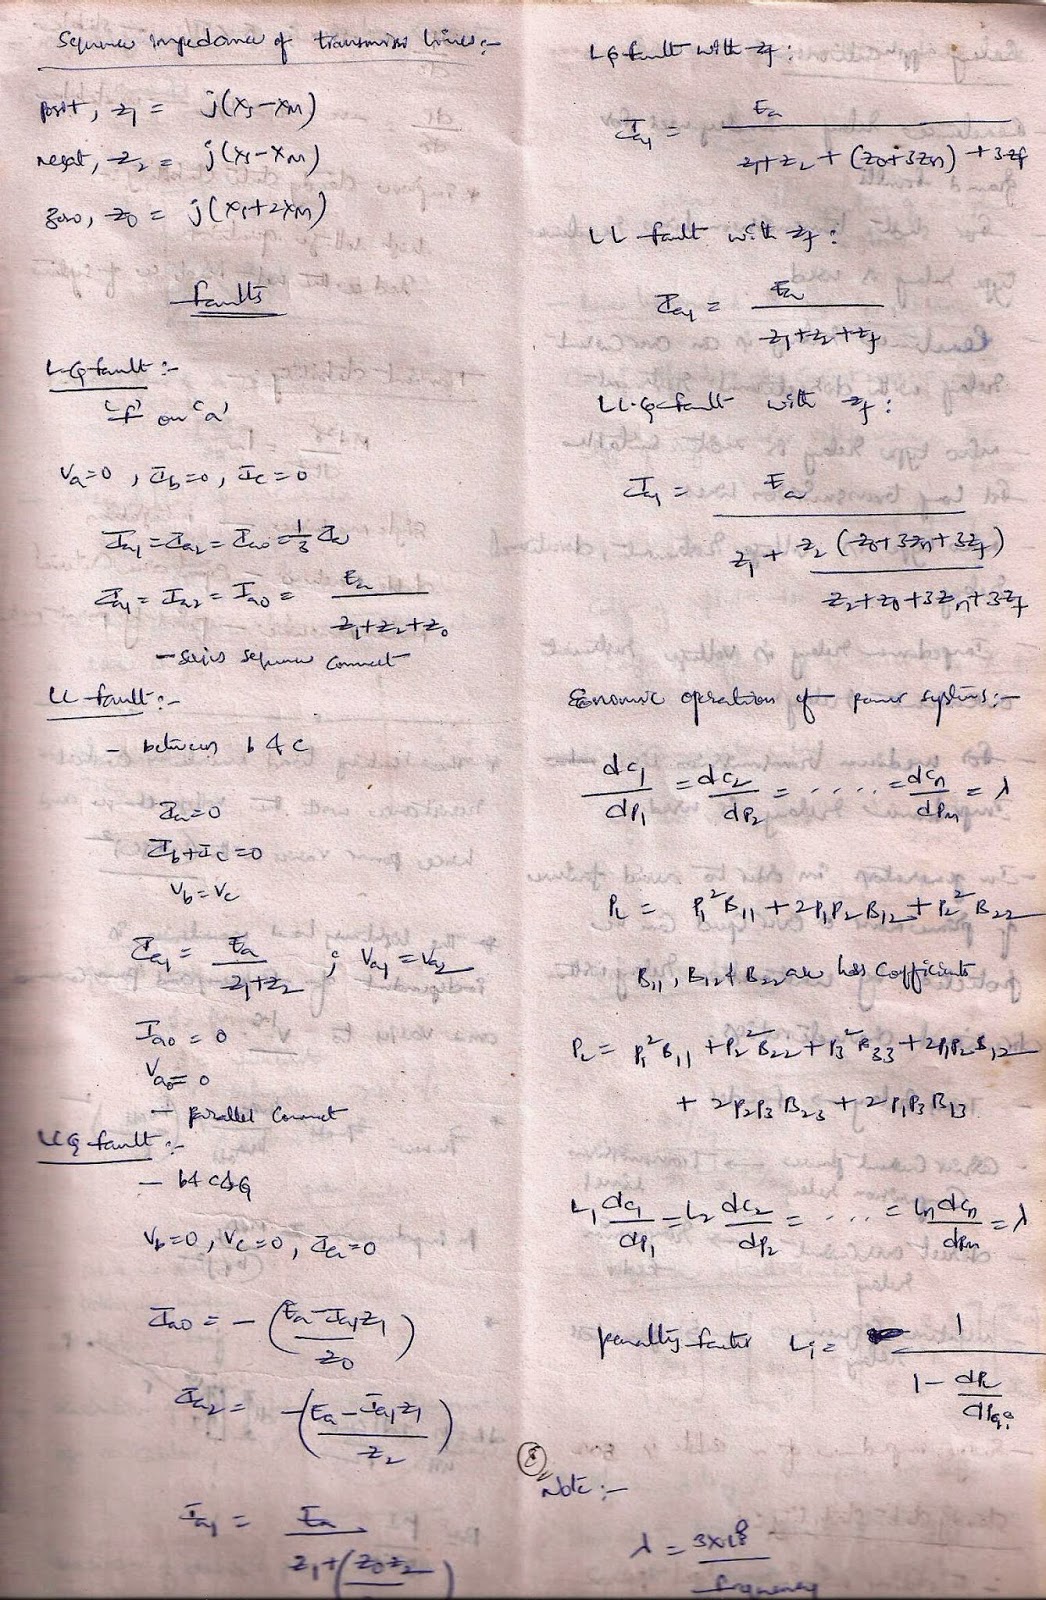 Sequence impedance of transmission lines:-
posit, z1 = j(xs-xm)
negat, z2 = j(xs-xm)
zero, z0 = j(xs+2xm)
faults
L-G fault:-
'f' on 'a'
Va=0, Ib=0, Ic=0
Ia1 = Ia2 = Ia0 = 1/3 Ia
Ia1 = Ia2 = Ia0 = Ea / (z1+z2+z0)
- series sequence connect
LL fault:-
- between b & c
Ia=0
Ib+Ic=0
Vb=Vc
Ia1 = Ea / (z1+z2) ; Va1=Va2
Ia0 = 0
Va0=0
- parallel connect
LLG fault:-
- b & c & G
Vb=0, Vc=0, Ia=0
Ia0 = - ((Ea-Ia1z1) / z0)
Ia2 = - ((Ea-Ia1z1) / z2)
Ia1 = Ea / (z1+(z0z2
LG fault with zf:
Ia1 = Ea / (z1+z2+(z0+3zn)+3zf
LL fault with zf:
Ia1 = Ea / (z1+z2+zf)
LL-G-fault with zf:
Ia1 = Ea / (z1 + z2(z0+3zn+3zf) / (z2+z0+3zn+3zf))
Economic operation of power systems:-
dC1/dP1 = dC2/dP2 = ..... = dCn/dPn = λ
PL = P1²B11 + 2P1P2B12 + P2²B22
B11, B12 & B22 are loss coefficients
PL = P1²B11 + P2²B22 + P3²B33 + 2P1P2B12
+ 2P2P3B23 + 2P1P3B13
L1 dC1/dP1 = L2 dC2/dP2 = .... = Ln dCn/dPn = λ
penalty factor Li = 1 / (1 - dPL/dPGi)
8
Note:-
λ = 3×10⁸ / frequency